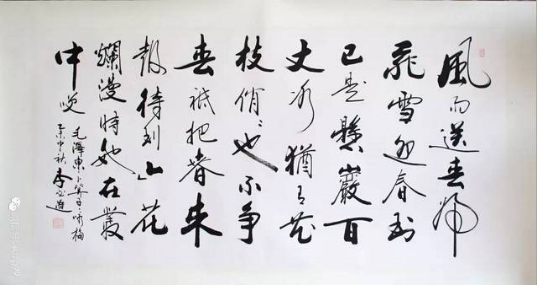 風雨送春歸
飛雪迎春到
已是懸巖百
丈冰猶有花
枝俏〻也不爭
春祇把春來
報待到山花
爛漫時她在叢
中咲
毛澤東卜算子詠梅
中秋李